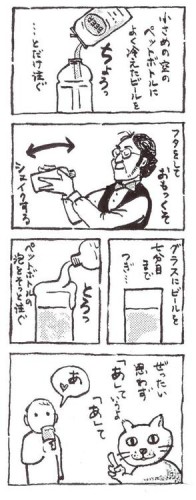 小さめの空の
ペットボトルに
よく冷えたビールを
ちょろっ
…とだけ注ぐ
フタをして
おもっくそ
シェイクする
グラスにビールを
七分目
まで
つぎ…
とろっ
ペットボトルの
泡をそっと注ぐ
ぜったい
思わず
「あ」って
いっちゃ
「あ」て
あ